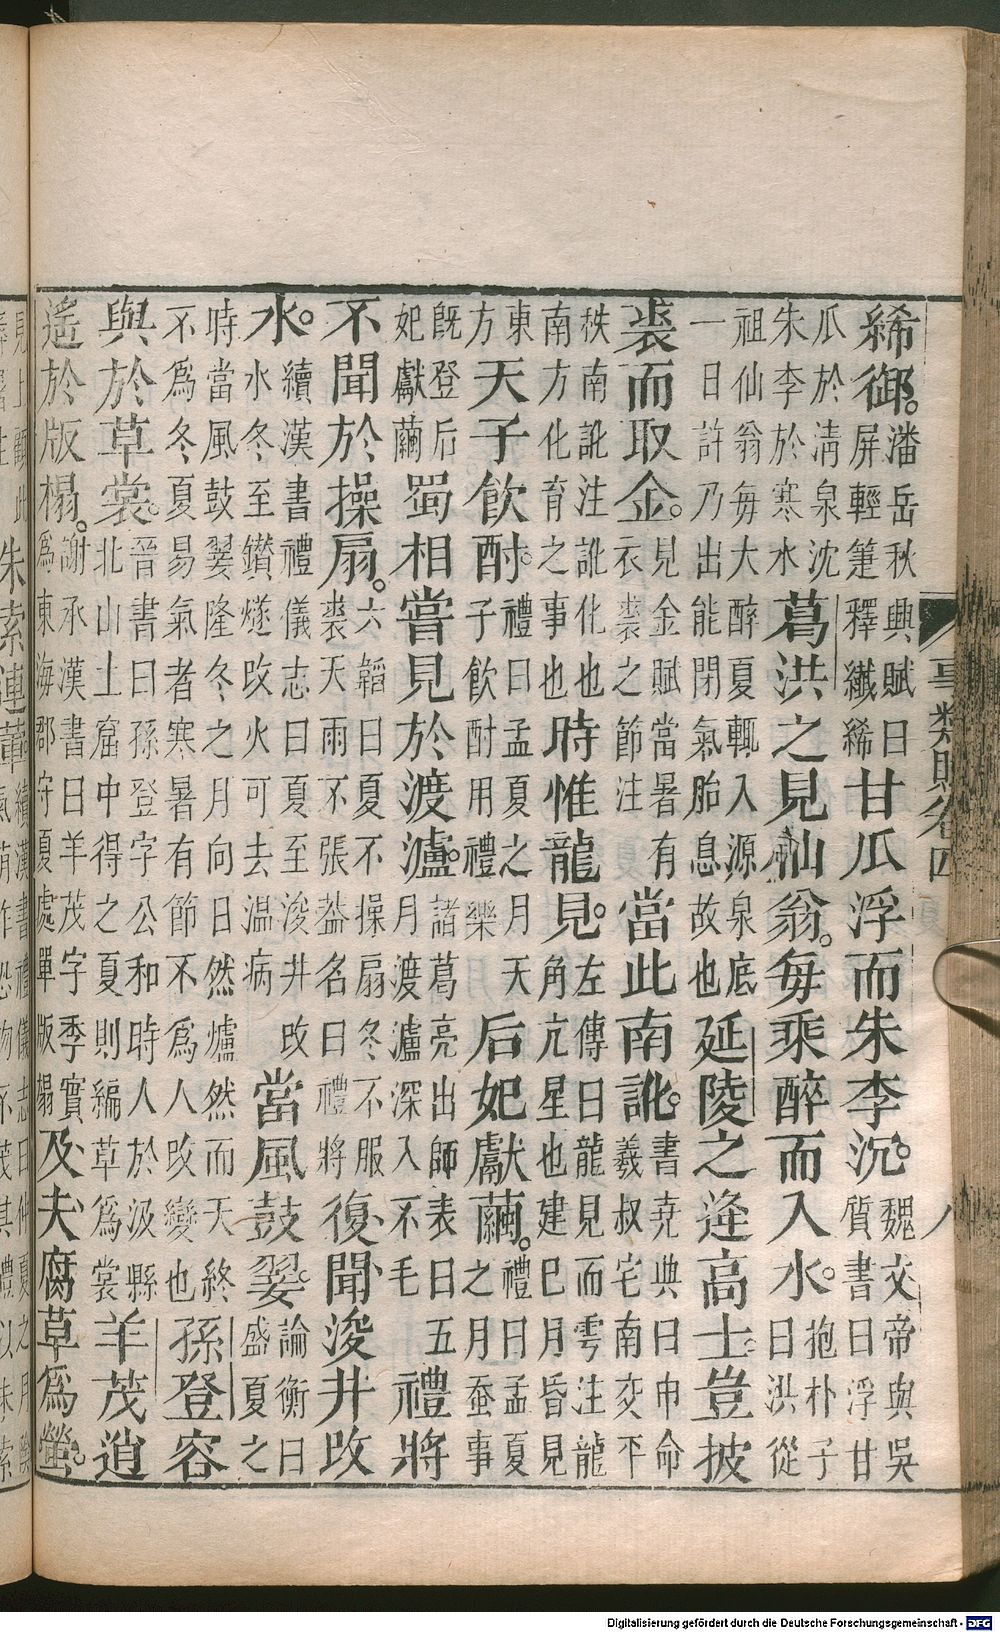 事類賦卷四 八
絺御。潘岳秋興賦曰屏輕箑釋纖絺甘瓜浮而朱李沉。魏文帝與吳質書曰浮甘
瓜於清泉沈朱李於寒水葛洪之見仙翁。每乘醉而入水。抱朴子曰洪從
祖仙翁每大醉夏輒入源泉底一日許乃出能閉氣胎息故也延陵之逢高士豈披
裘而取金。見金賦當暑有衣裘之節注當此南訛。書堯典曰巾命羲叔宅南交平
秩南訛注訛化也南方化育之事也時惟龍見。左傳曰龍見而雩注龍角亢星也建巳月昏見
東方天子飲酎。禮曰孟夏之月天子飲酎用禮樂后妃獻繭。禮曰孟夏之月蚕事
既登后妃獻繭蜀相嘗見於渡瀘。諸葛亮出師表曰五月渡瀘深入不毛禮將
不聞於操扇。六韜曰夏不操扇冬不服裘天雨不張蓋名曰禮將復聞浚井改
水。續漢書禮儀志曰夏至浚井改水冬至鑽燧改火可去温病當風鼓翣。論衡曰盛夏之
時當風鼓翣隆冬之月向日然爐然而天終不爲冬夏易氣者寒暑有節不爲人改變也孫登容
與於草裳。晉書曰孫登字公和時人於汲縣北山土窟中得之夏則編草爲裳羊茂逍
遙於版榻。謝承漢書曰羊茂字季實爲東海郡守夏處單版榻及夫腐草爲螢。
朱索連葷續漢書禮儀志曰仲夏之月
Digitalisierung gefördert durch die Deutsche Forschungsgemeinschaft - DFG